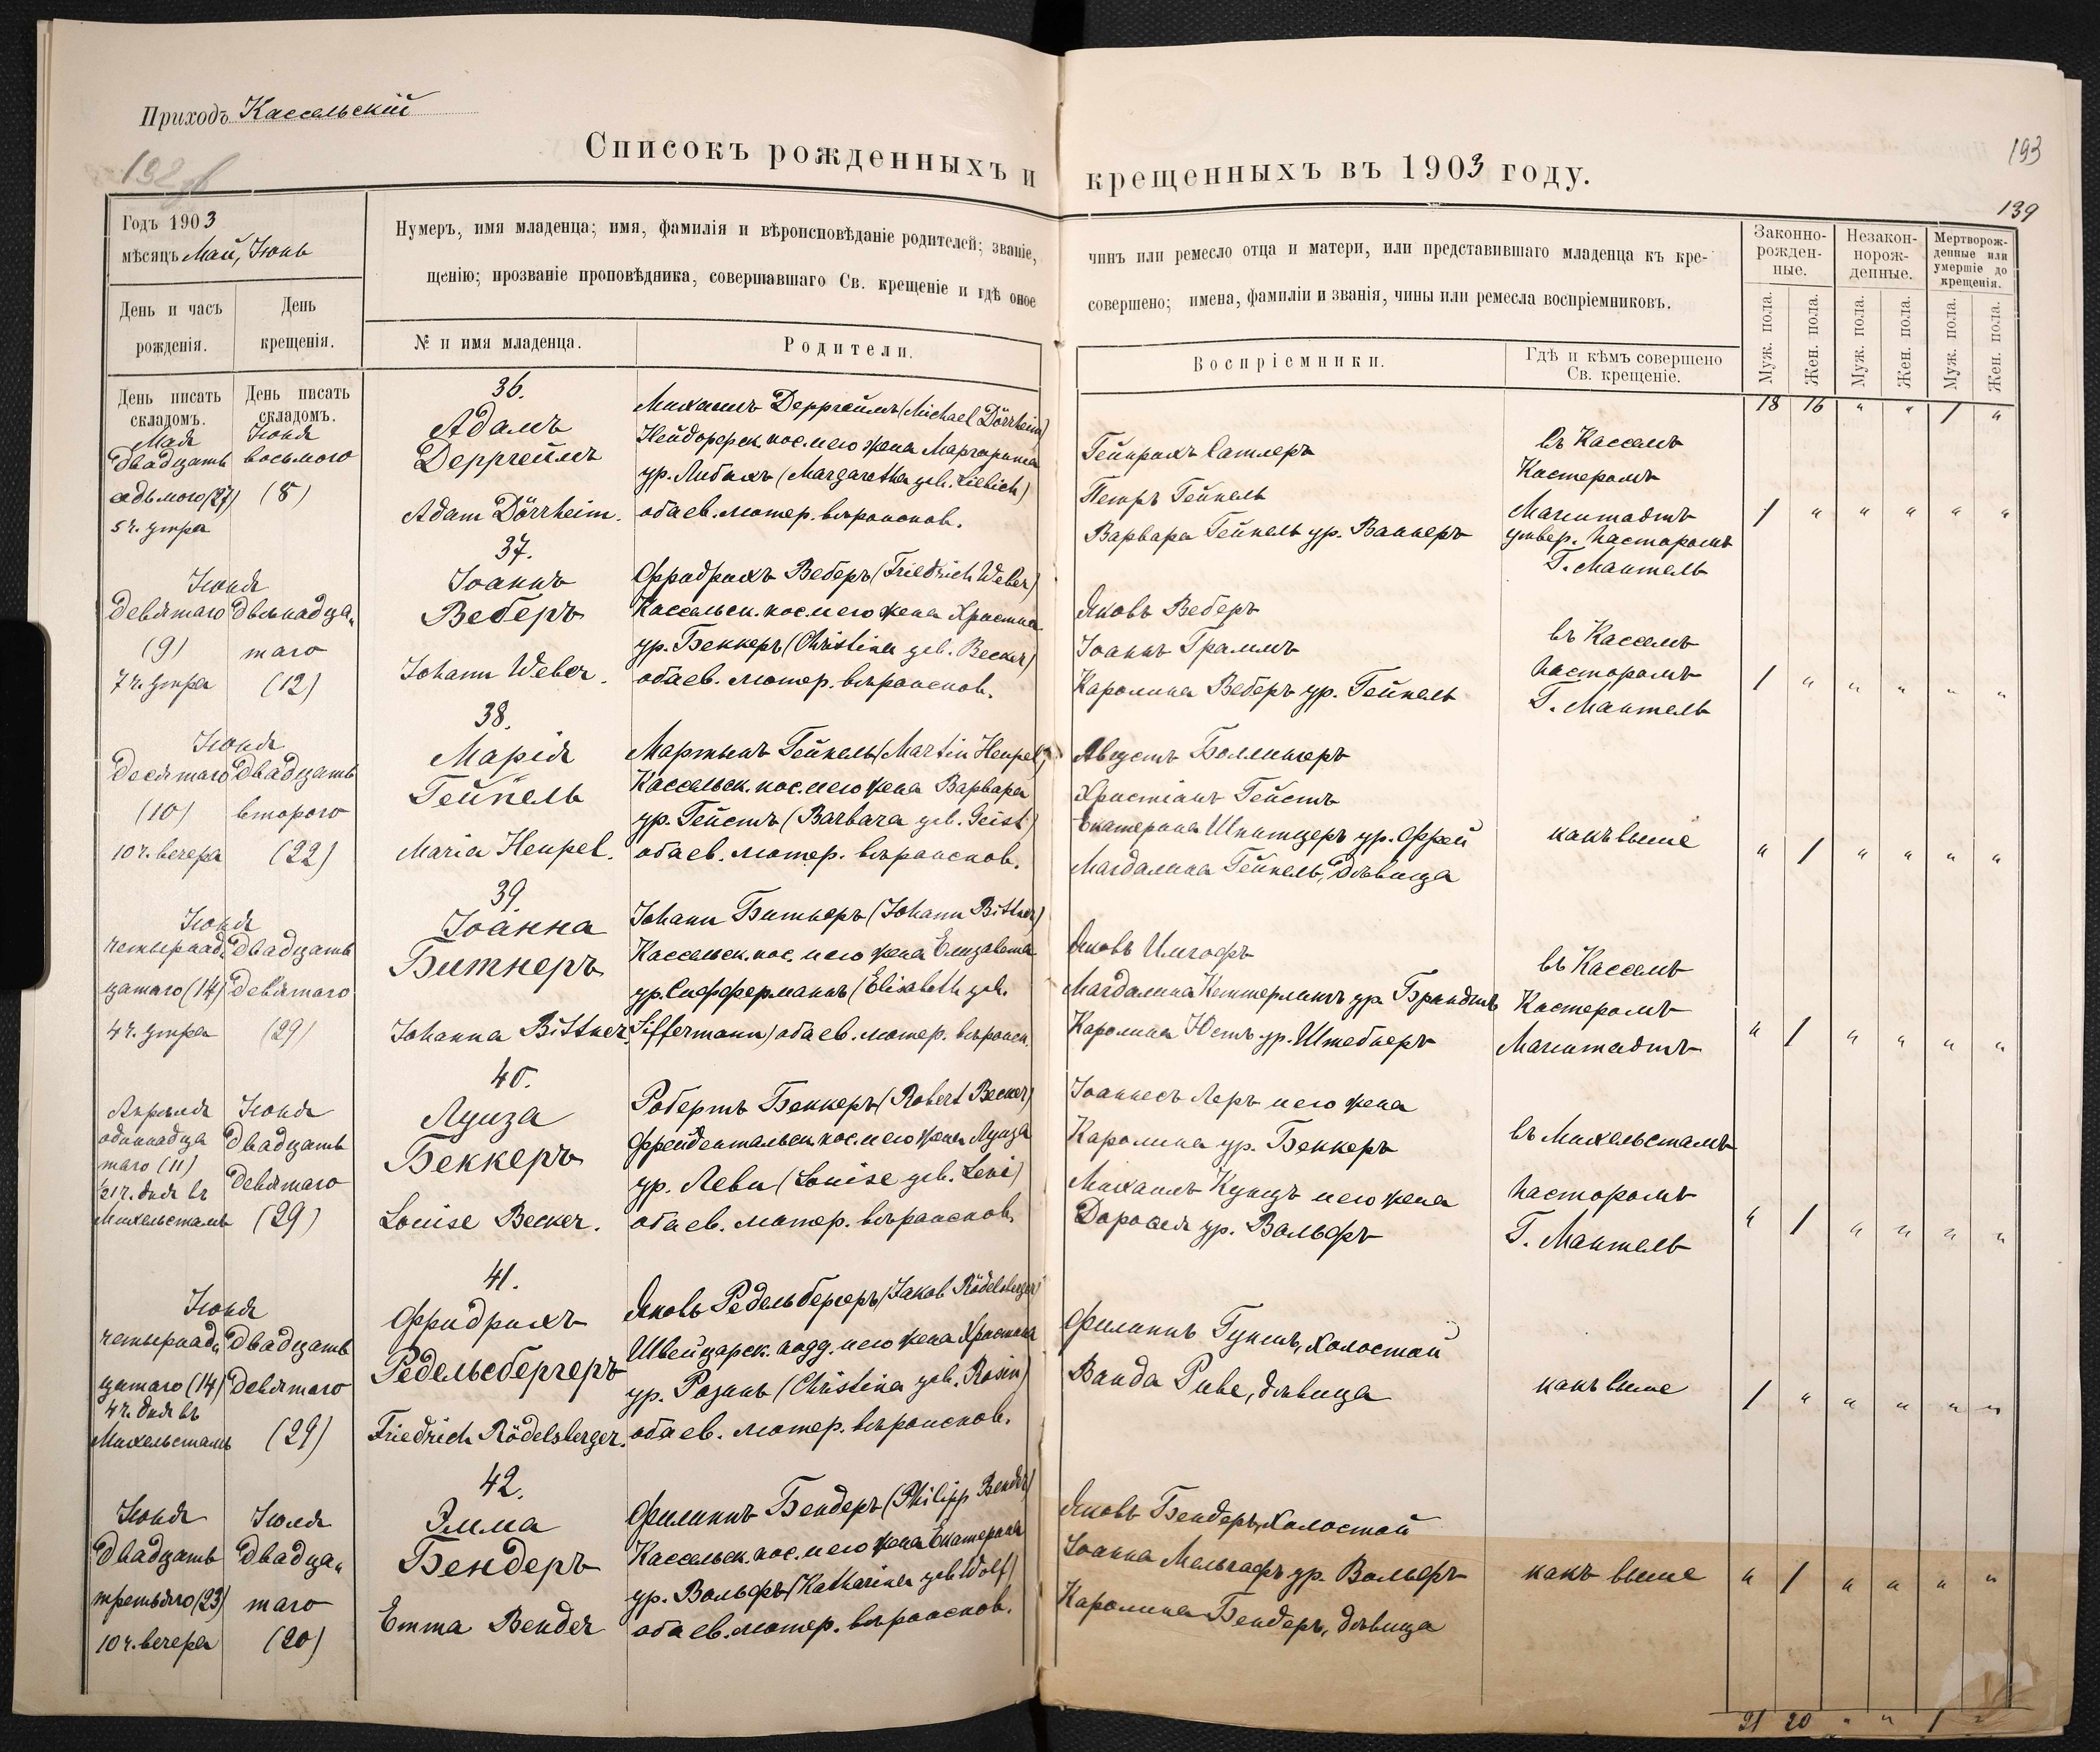 Приходъ Кассельскій
193
Списокъ рожденныхъ и крещенныхъ въ 1903 году.
139
Годъ 1903
мѣсяцъ Май, Іюнь
Нумеръ, имя младенца; имя, фамилія и вѣроисповѣданіе родителей; званіе, чинъ или ремесло отца и матери, или представившаго младенца къ кре-
щенію; прозваніе проповѣдника, совершавшаго Св. крещеніе и гдѣ оное совершено; имена, фамиліи и званія, чины или ремесла воспріемниковъ.
Законно-
рожден-
ные.
Незакон-
норож-
денные.
Мертворож-
денные или
умершіе до
крещенія.
День и часъ
рожденія.
День
крещенія.
№ и имя младенца.
Родители.
Воспріемники.
Гдѣ и кѣмъ совершено
Св. крещеніе.
Муж. пола.
Жен. пола.
Муж. пола.
Жен. пола.
Муж. пола.
Жен. пола.
День писать
складомъ.
День писать
складомъ.
18 16 " " 1 "
Мая
двадцать
седьмого (27)
5 ч. утра
Іюня
восьмого
(8)
36.
Адамъ
Дерргеймъ
Adam Dörrheim.
Михаилъ Дерргеймъ (Michael Dörrheim)
Нейдорфск. пос. и его жена Маргарита
ур. Либихъ (Margaretha geb. Liebich)
оба ев. лютер. вѣроисков.
Гейнрихъ Сатлеръ
Петръ Гейпель
Варвара Гейпель ур. Ваннеръ
въ Касселѣ
Кистеромъ
Магштадтъ
утвер. пасторомъ
Г. Мантель
1 " " " " "
Іюня
девятаго
(9)
7 ч. утра
двѣнадца„
таго
(12)
37.
Іоаннъ
Веберъ
Johann Weber.
Фридрихъ Веберъ (Friedrich Weber)
Кассельск. пос. и его жена Христина
ур. Беккеръ (Christina geb. Becker)
оба ев. лютер. вѣроисков.
Яковъ Веберъ
Іоаннъ Граммъ
Каролина Веберъ ур. Гейпель
въ Касселѣ
пасторомъ
Г. Мантель
1 " " " " "
Іюня
десятаго
(10)
10 ч. вечера
двадцать
второго
(22)
38.
Марія
Гейпель
Maria Heupel.
Мартынъ Гейпель (Martin Heupel)
Кассельск. пос. и его жена Варвара
ур. Гейстъ (Barbara geb. Geist)
оба ев. лютер. вѣроисков.
Августъ Боллингеръ
Христіанъ Гейстъ
Екатерина Шнитцеръ ур. Фрей
Магдалина Гейпель, дѣвица
какъ выше
" 1 " " " "
Іюня
четырнад„
цатаго (14)
4 ч. утра
двадцать
девятаго
(29)
39.
Іоанна
Битнеръ
Johanna Bittner.
Johann Битнеръ (Johann Bittner)
Кассельск. пос. и его жена Елизавета
ур. Сифферманнъ (Elisabeth geb.
Siffermann) оба ев. лютер. вѣроиск.
Яковъ Имгофъ
Магдалина Кеттерлингъ ур. Брандтъ
Каролина Юстъ ур. Штебнеръ
въ Касселѣ
Кистеромъ
Магштадтъ
" 1 " " " "
Апрѣля
одиннадца
таго (11)
½1 ч. дня въ
Михельсталѣ
Іюня
двадцать
девятаго
(29)
40.
Луиза
Беккеръ
Louise Becker.
Робертъ Беккеръ (Robert Becker)
Фрейдентальск. пос. и его жена Луиза
ур. Леви (Louise geb. Levi)
оба ев. лютер. вѣроисков.
Іоаннесъ Леръ и его жена
Каролина ур. Беккеръ
Михаилъ Кунцъ и его жена
Доротея ур. Вольфъ
въ Михельсталѣ
пасторомъ
Г. Мантель
" 1 " " " "
Іюня
четырнад„
цатаго (14)
4 ч. дня въ
Михельсталѣ
двадцать
девятаго
(29)
41.
Фридрихъ
Редельсбергеръ
Friedrich Rödelsberger.
Яковъ Редельбергеръ (Jakob Rödelsberger)
Швейцарск. подд. и его жена Христина
ур. Розинъ (Christina geb. Rosin)
оба ев. лютер. вѣроисков.
Филиппъ Гунтъ, холостой
Ванда Риве, дѣвица
какъ выше
1 " " " " "
Іюня
двадцать
третьяго (23)
10 ч. вечера
Іюля
двадца„
таго
(20)
42.
Эмма
Бендеръ
Emma Bender
Филиппъ Бендеръ (Philipp Bender)
Кассельск. пос. и его жена Екатерина
ур. Вольфъ (Katharina geb. Wolf)
оба ев. лютер. вѣроисков.
Яковъ Бендеръ, холостой
Іоанна Мельгафъ ур. Вольфъ
Каролина Бендеръ, дѣвица
какъ выше
" 1 " " " "
21 20 " " 1 "